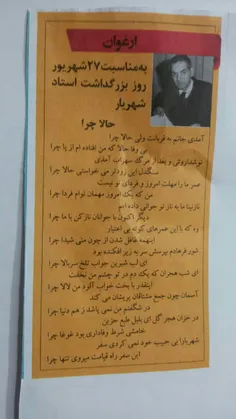 ارغوان
به مناسبت ۲۷ شهریور
روز بزرگداشت استاد
شهریار
حالا چرا
آمدی جانم به قربانت ولی حالا چرا
بی وفا حالا که من افتاده ام از پا چرا
نوشداروئی و بعد از مرگ سهراب آمدی
سنگدل این زودتر می خواستی حالا چرا
عمر ما را مهلت امروز و فردای تو نیست
من که یک امروز مهمان توام فردا چرا
نازنینا ما به ناز تو جوانی داده ایم
دیگر اکنون با جوانان نازکن با ما چرا
وه که با این عمرهای کوته بی اعتبار
اینهمه غافل شدن از چون منی شیدا چرا
شور فرهادم بپرسش سر به زیر افکنده بود
ای لب شیرین جواب تلخ سربالا چرا
ای شب هجران که یک دم در تو چشم من نخفت
اینقدر با بخت خواب آلود من لالا چرا
آسمان چون جمع مشتاقان پریشان می کند
در شگفتم من نمی پاشد ز هم دنیا چرا
در خزان هجر گل ای بلبل طبع حزین
خامشی شرط وفاداری بود غوغا چرا
شهریارا بی حبیب خود نمی کردی سفر
این سفر راه قیامت میروی تنها چرا